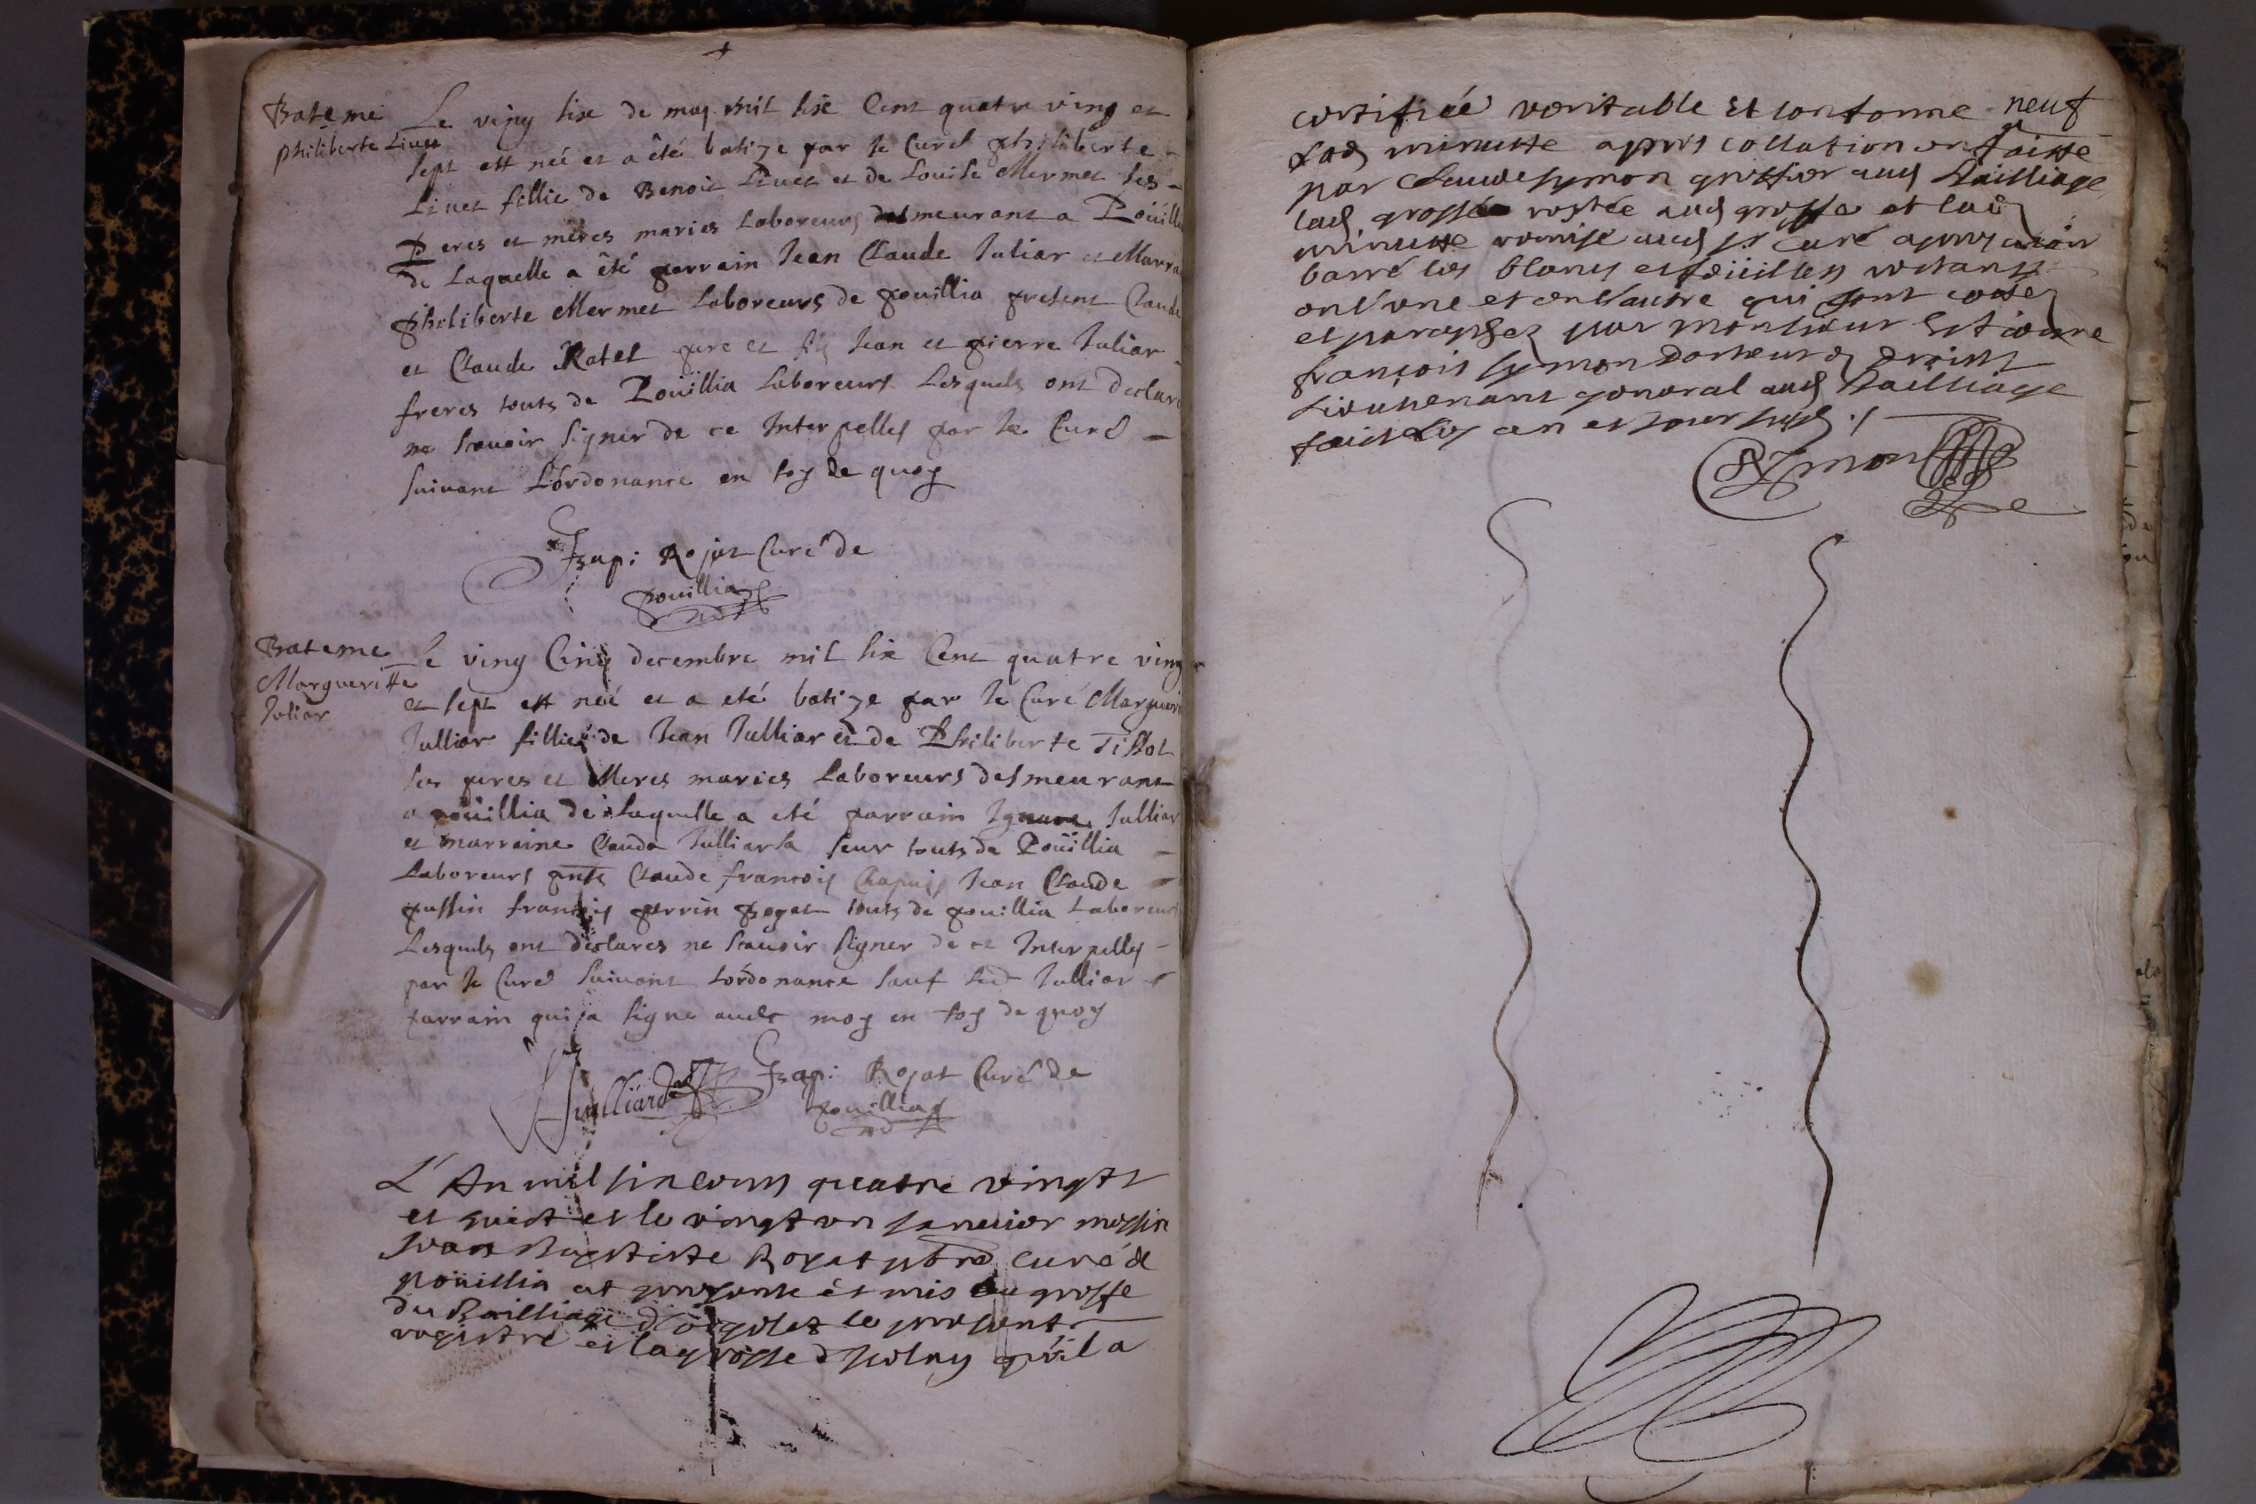 Bateme
philiberte Livet
Le ving six de may mil six Cent quatre ving et
sept est neé et a êté batize par le Curé philiberte
Livet fillie de Benoit Livet et de Louise Mermet ses
Peres et meres maries Laboreurs desmeurant a Poüillia
de Laquelle a êté parrain Jean Claude Juliar et Marra
philiberte Mermet Laboreurs de pouillia present Claude
et Claude Ratel pere et fis Jean et pierre Juliar
freres touts de Poüillia Laboreurs Lesquels ont declare
ne scavoir signer de ce Interpelles par le Curé
suivant L'ordonance en foy de quoy
Rojat Curé de
pouillia
Bateme
Margueritte
Juliar
Le ving Cinq decembre mil six Cent quatre ving
et sept est neé et a eté batize par le Curé Margueri
Julliar fillie de Jean Julliar et de Philiberte Tissot
ses peres et Meres maries Laboreurs desmeurant
a poüillia de Laquelle a eté parrain Ignace Julliar
et marraine Clauda Julliar sa seur touts de Poüillia
Laboreurs pnts Claude françois Chapuis Jean Claude
pussin françois perrin poget touts de pouillia Laboreurs
Lesquels ont declares ne scavoir signer de ce Interpelles
par le Curé suivant L'ordonance sauf led Julliar
parrain qui a signe avec moy en foy de quoy
Juilliard Rojat Curé de
pouillia
L'An mil six cents quatre vingts
et huict et le vingt un janvier messire
Jean Baptiste Royat pbre curé de
poüillia at presenté et mis au greffe
du Bailliage d'Orgelet le present
registre et la grosse d'iceluy qu'il a
certifiée veritable et conforme neuf
lad minutte apres collation en faitte
par Claude symon greffier aud Bailliage
lad grosse restée aud greffe et lad
minutte remise aud sr Curé apres avoir
barré les blancs et feüilles restans
en l'une et en l'autre qui sont cottez
et paraphez par monsieur Estienne
françois symon docteur es droits
Lieutenant general aud Bailliage
faict les an et jour susd
Symon